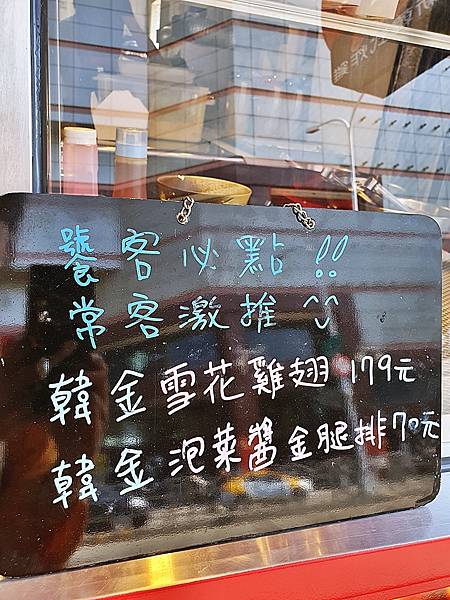 饕客必點!!
常客激推^^
韓金雪花雞翅179元
韓金泡菜醬金腿排70元